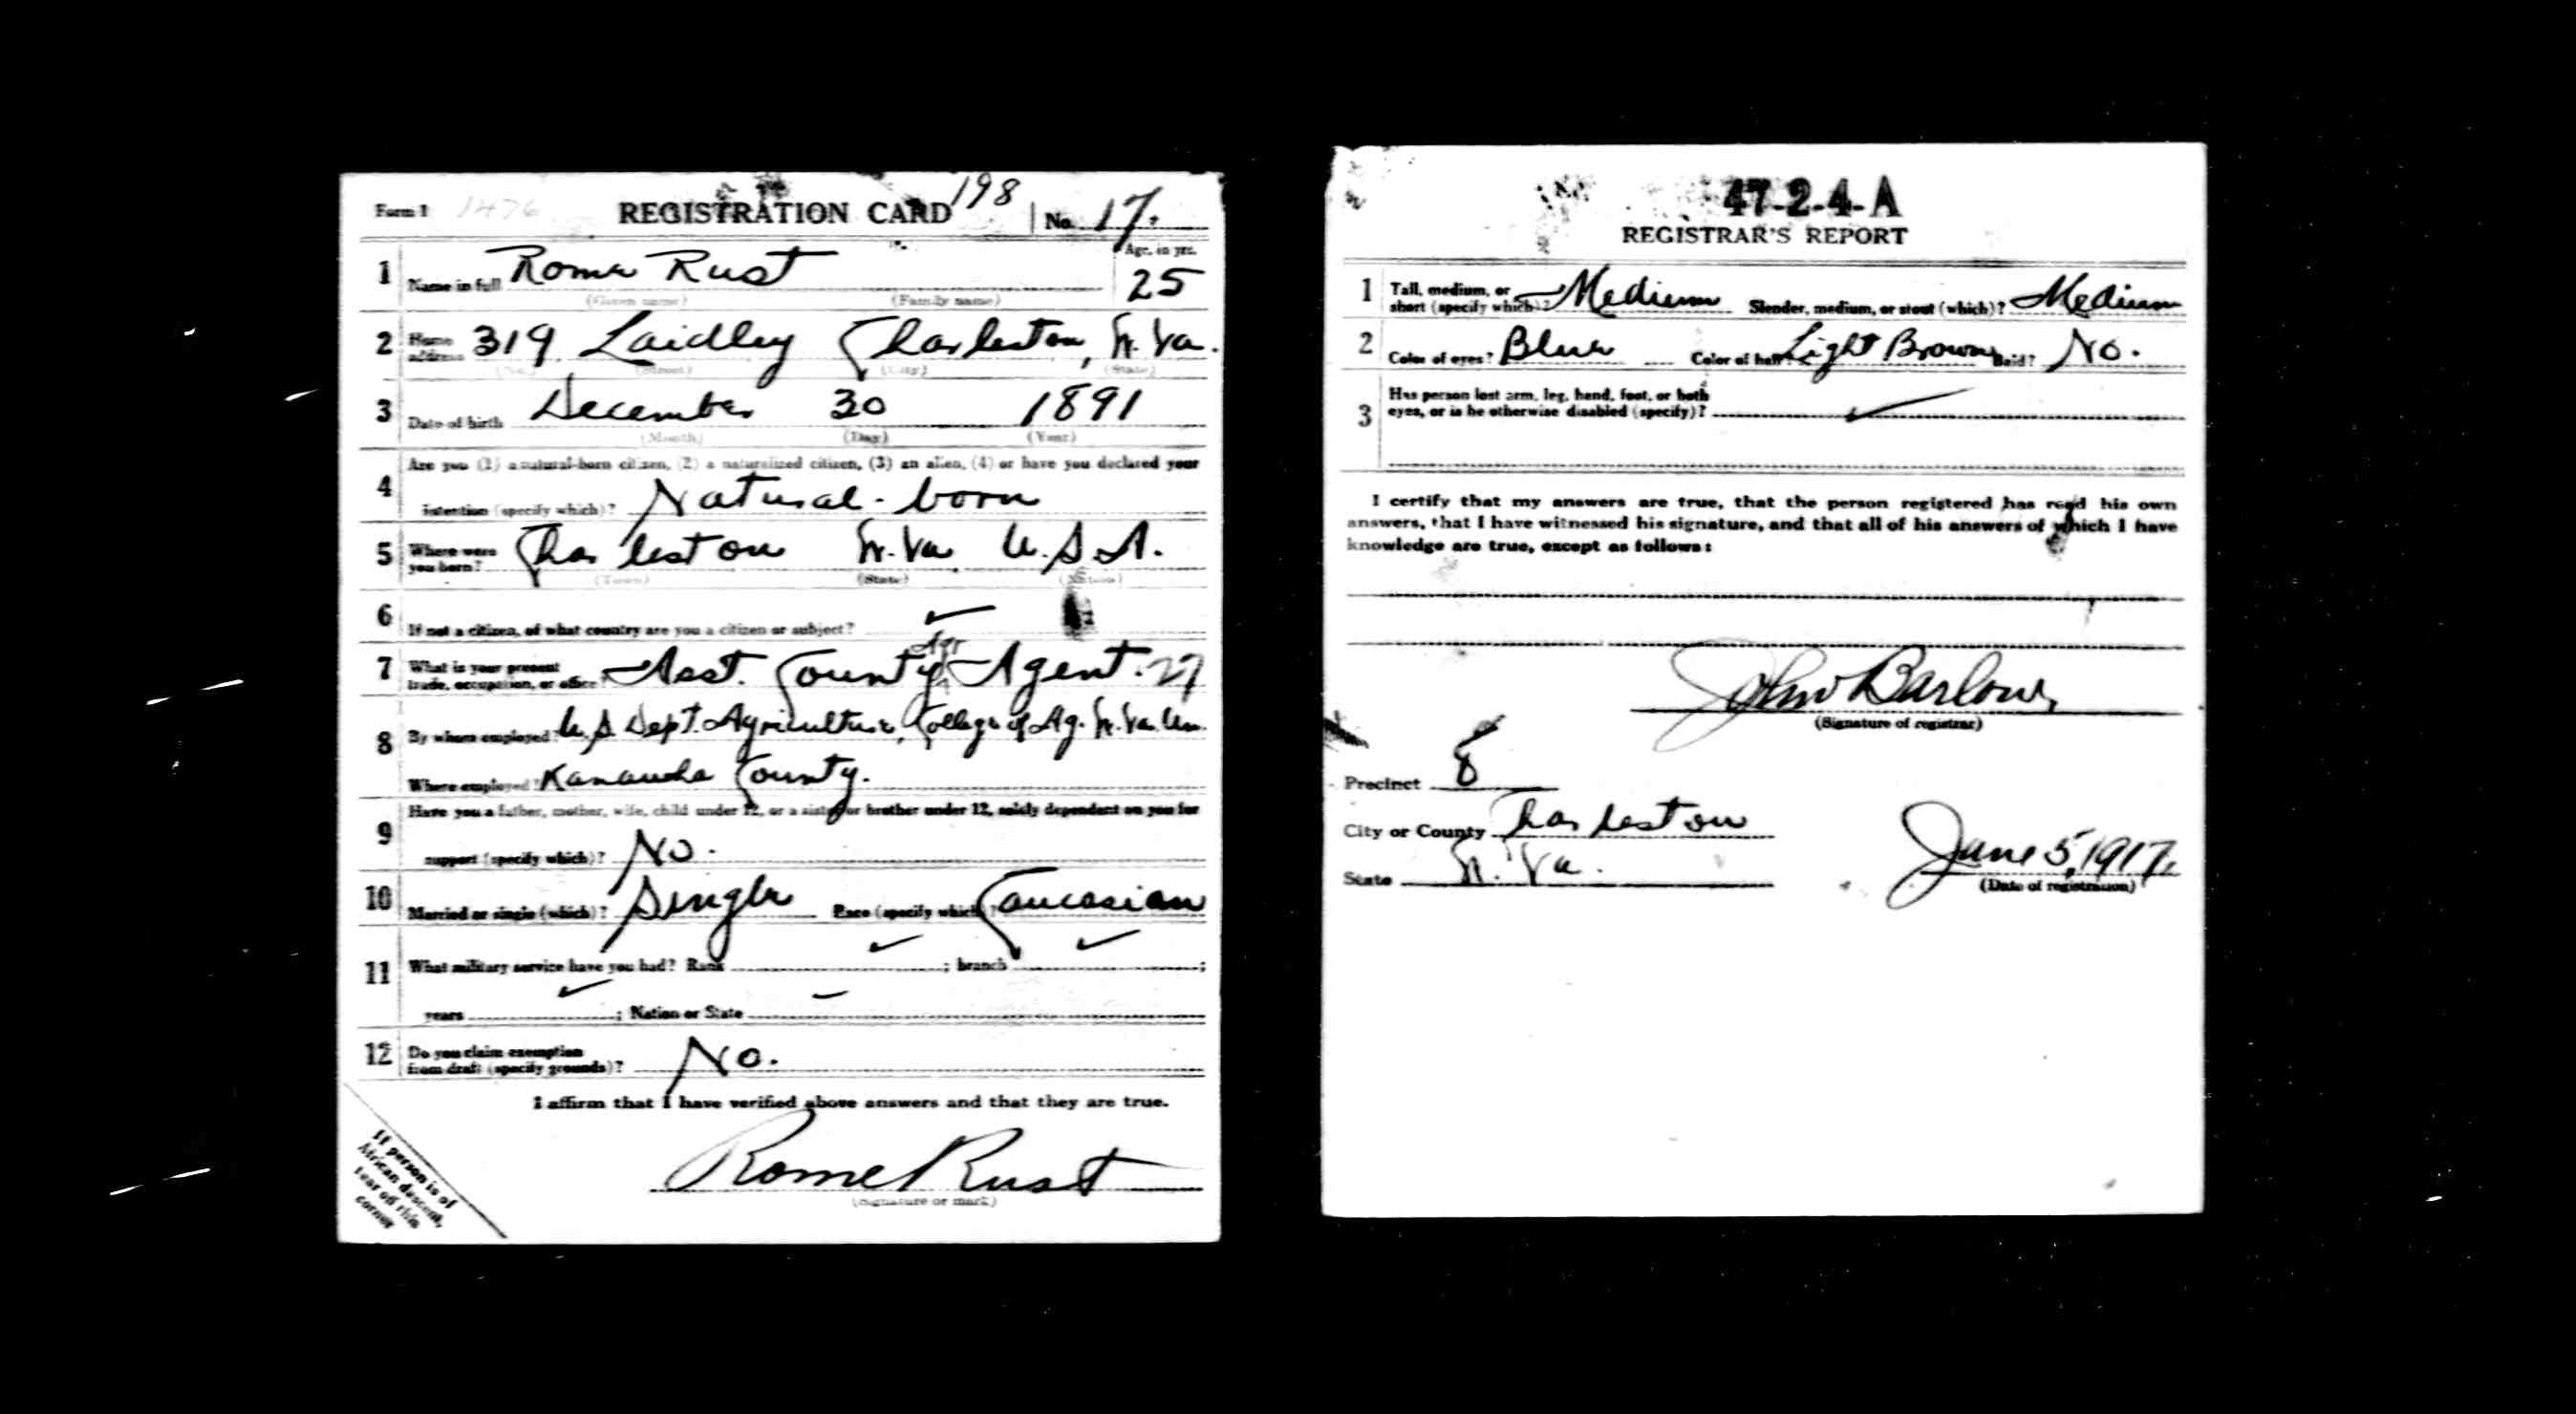 Form 1 1476 REGISTRATION CARD 198 No. 17.
1 Name in full Rome Rust Age, in yrs. 25
(Given name) (Family name)
2 Home address 319 Laidley Charleston, W. Va.
(No.) (Street) (City) (State)
3 Date of birth December 30 1891
(Month) (Day) (Year)
4 Are you (1) a natural-born citizen, (2) a naturalized citizen, (3) an alien, (4) or have you declared your
intention (specify which)? Natural-born
5 Where were you born? Charleston W. Va. U.S.A.
(Town) (State) (Nation)
6 If not a citizen, of what country are you a citizen or subject? ✓
Agr
7 What is your present trade, occupation, or office? Asst. County Agent. 27
8 By whom employed? U.S. Dept. Agriculture, College of Ag. W. Va. Un.
Where employed? Kanawha County.
9 Have you a father, mother, wife, child under 12, or a sister or brother under 12, solely dependent on you for
support (specify which)? No.
10 Married or single (which)? Single Race (specify which)? Caucasian
11 What military service have you had? Rank ✓ ; branch ✓ ;
years ✓ ; Nation or State –
12 Do you claim exemption from draft (specify grounds)? No.
I affirm that I have verified above answers and that they are true.
Rome Rust
(Signature or mark)
If person is of
African descent,
tear off this
corner
47-2-4-A
REGISTRAR'S REPORT
1 Tall, medium, or short (specify which)? Medium Slender, medium, or stout (which)? Medium
2 Color of eyes? Blue Color of hair? Light Brown Bald? No.
3 Has person lost arm, leg, hand, foot, or both
eyes, or is he otherwise disabled (specify)? ✓
I certify that my answers are true, that the person registered has read his own
answers, that I have witnessed his signature, and that all of his answers of which I have
knowledge are true, except as follows:
John Barlow,
(Signature of registrar)
Precinct 8
City or County Charleston
State W. Va.
June 5, 1917,
(Date of registration)